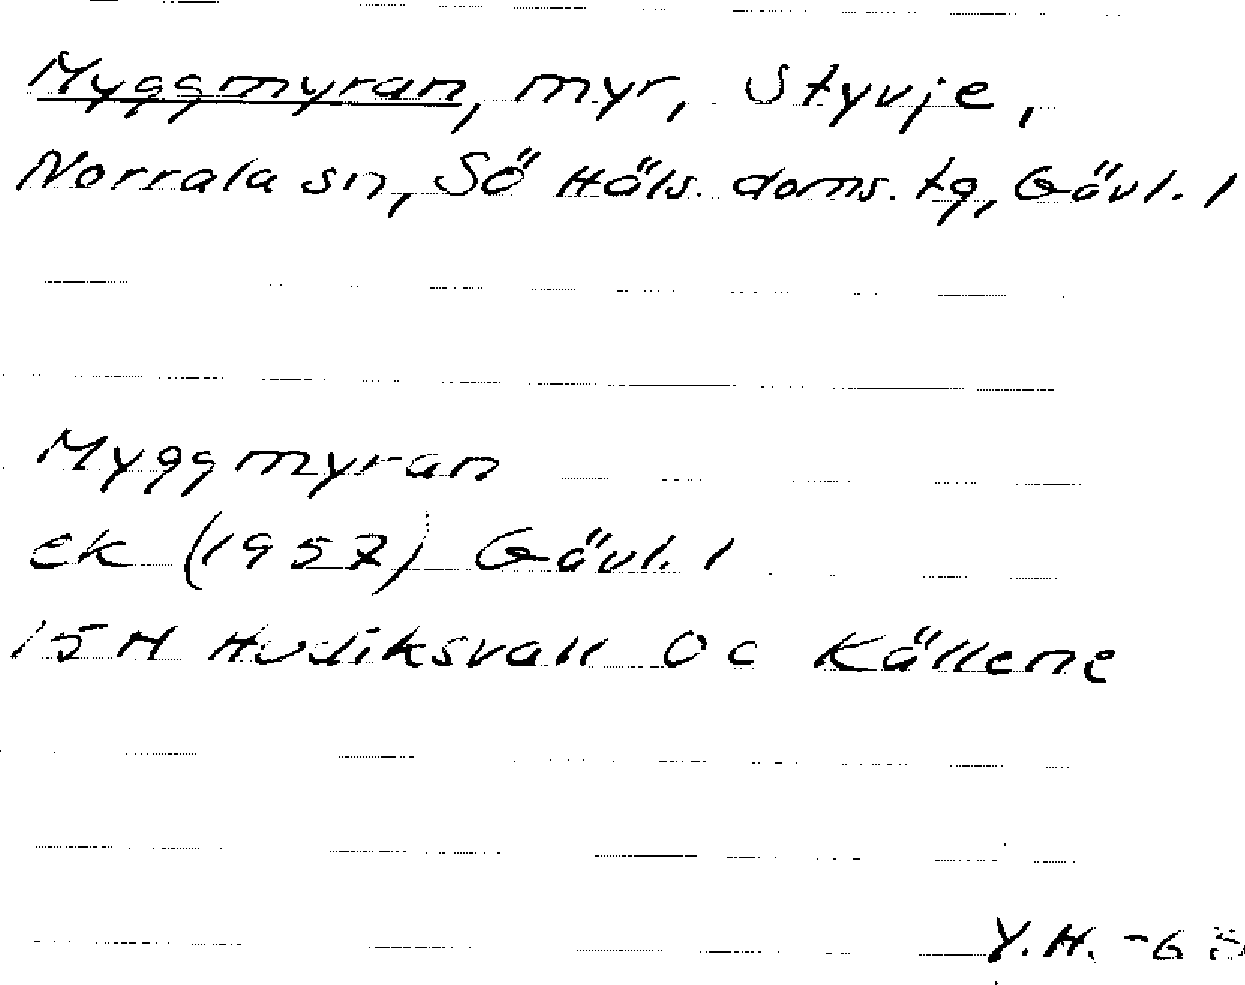 Myggmyran, myr, Styvje,
Norrala sn, Sö Häls. doms. tg, Gävl. l
Myggmyran
ek (1957) Gävl. l
15H Hudiksvall 0c Källene
Y.H. -65